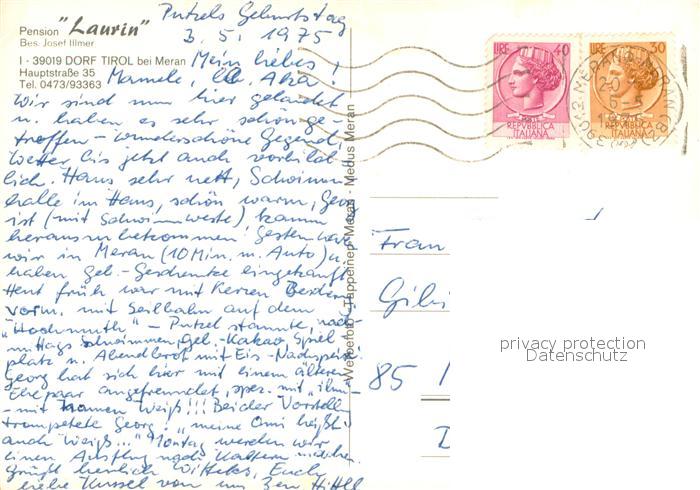 Putzels Geburtstag
3. 5. 1975
Pension "Laurin"
Bes. Josef Illmer
I - 39019 DORF TIROL bei Meran
Hauptstraße 35
Tel. 0473/93363
Mein liebes!
Mamele,
Wir sind nun hier gelandet
u. haben es sehr schön ge-
troffen - wunderschöne Gegend,
Wetter bis jetzt auch vorbild-
lich. Haus sehr nett, Schwimm-
halle im Haus, schön warm, Georg
ist (mit Schwimmweste) kaum
herauszubekommen! Gestern waren
wir in Meran (10 Min. m. Auto) u
haben Geb.-Geschenke eingekauft.
Heut früh war mit Kerzen
vorm. mit Seilbahn auf dem
"Hochmuth" - Putzel staunte, nach-
mittags Schwimmen, Geb.-Kakao, Spiel-
platz u. Abendbrot mit Eis-Nachspeise
Georg hat sich hier mit einem älteren
Ehepaar angefreundet, spez. mit "ihm"
- mit Namen Weiß!!! Bei der Vorstellung
trompetete Georg: "meine Omi heißt
auch Weiß..." Montag werden wir
einen Ausflug nach Kaltern machen.
Grüßt herzlich Euch
liebe Kussel von uns
Werbefoto Tappeiner, Meran - Medus Meran
LIRE 40
REPVBBLICA
ITALIANA
LIRE 30
REPVBBLICA
ITALIANA
39012 MERANO
Frau
85
privacy protection
Datenschutz